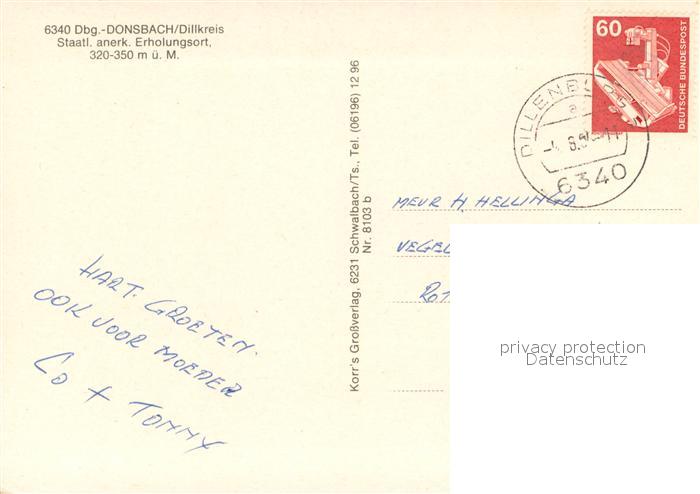 6340 Dbg.-DONSBACH/Dillkreis
Staatl. anerk. Erholungsort,
320-350 m ü. M.
60
DEUTSCHE BUNDESPOST
DILLENBURG
a
6340
Korr's Großverlag, 6231 Schwalbach/Ts., Tel. (06196) 12 96
Nr. 8103 b
MEVR H. HELLINGA
VEGEL
ROT
HART. GROETEN.
OOK VOOR MOEDER
CO + TOMMY
privacy protection
Datenschutz